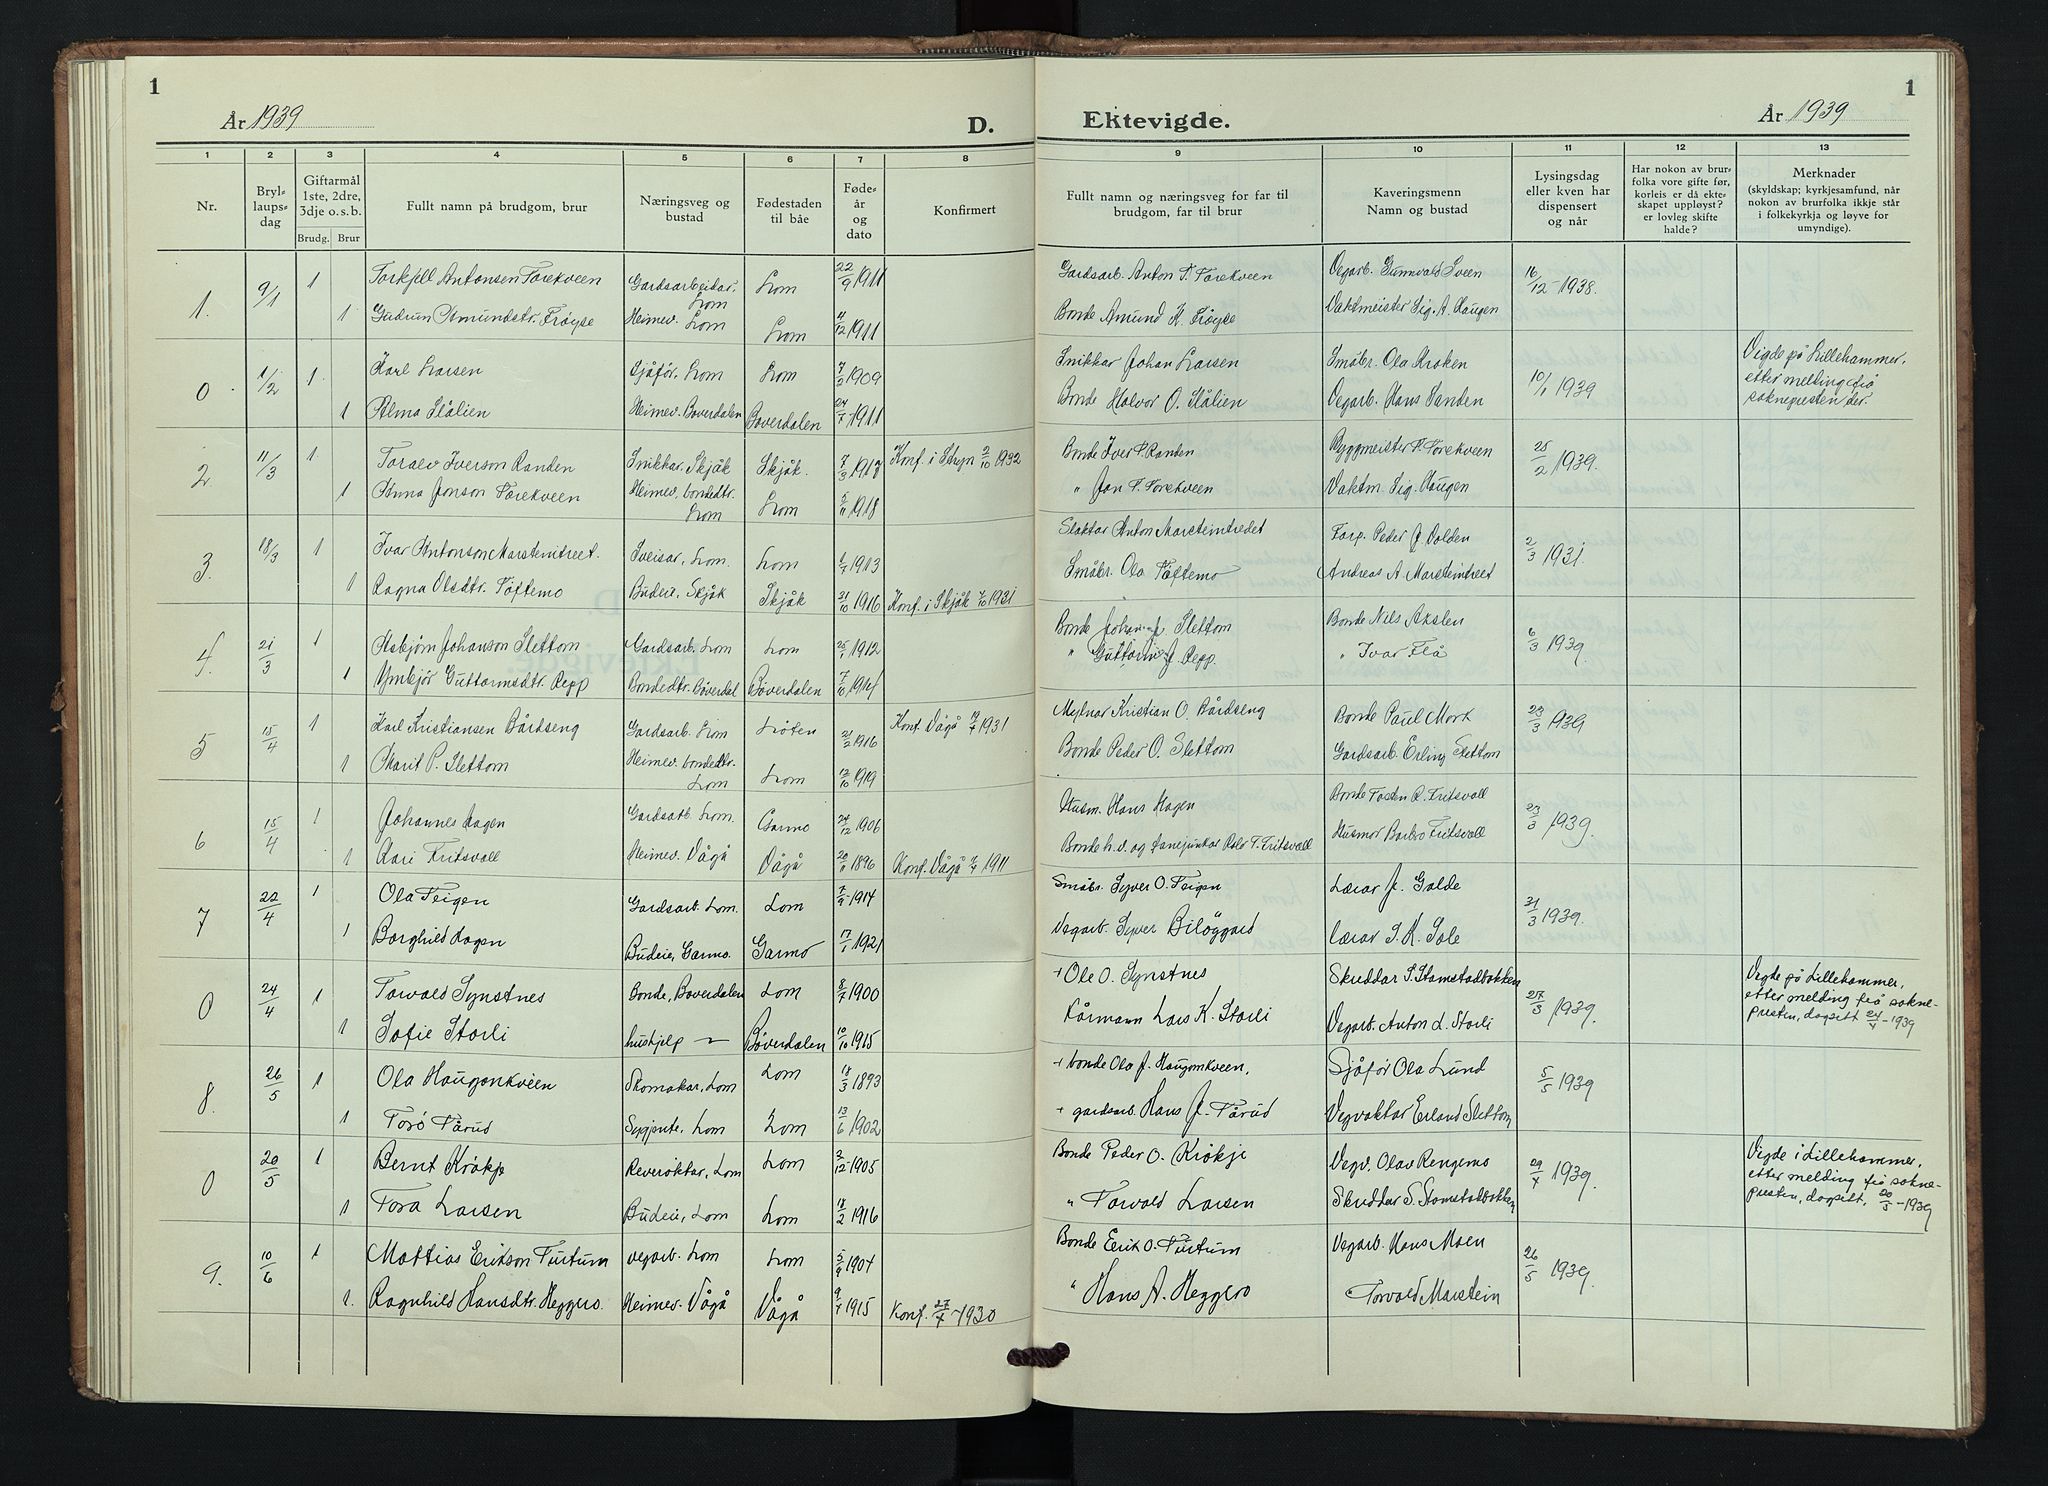 1
År 1939
D.
1 2 3 4 5 6 7 8
Nr.
Bryl-
laups-
dag
Giftarmål
1ste, 2dre,
3dje o.s.b.
Brudg. Brur
Fullt namn på brudgom, brur
Næringsveg og
bustad
Fødestaden
til båe
Føde-
år
og
dato
Konfirmert
1. 9/1 1 Torkjell Antonsen Forekveen Gardsarbeidar, Lom Lom 22/9 1911
1 Gudrun Amundstr. Frøyse Heimev. Lom Lom 4/12 1911
0 1/2 1 Karl Larsen Sjåfør. Lom Lom 7/2 1909
1 Alma Slålien Heimev. Bøverdalen Bøverdalen 24/7 1911
2 11/3 1 Toralv Iverson Randen Snikkar. Skjåk Skjåk. 7/3 1917 Konf. i Stryn 2/10 1932
1 Anna Jonson Forekveen Heimev. bondedtr. Lom Lom 5/11 1918
3. 18/3 1 Ivar Antonson Marsteintreet. Sveisar, Lom. Lom 1/1 1913
1 Ragna Olsdtr. Tøftemo Budeie, Skjåk Skjåk 21/10 1916 Konf. i Skjåk 4/10 1931
4. 21/3 1 Asbjørn Johanson Slettom Gardsarb. Lom Lom 25/1 1912
1 Ymbjør Guttormsdtr. Repp Bondedtr. Bøverdal Bøverdalen 7/10 1914
5 15/4 1 Karl Kristiansen Bårdseng Gardsarb. Lom Løten 21/2 1916 Konf. Vågå 1931
1 Marit P. Slettom Heimev. bondedtr. Lom Lom 12/10 1919
6 15/4 1 Johannes Hagen Gardsarb. Lom. Garmo 24/12 1906
1 Kari Fritsvoll Heimev. Vågå Vågå 20/11 1896 Konf. Vågå 1911
7 22/4 1 Ola Teigen Gardsarb. Lom. Lom 7/9 1914
1 Borghild Hagen Budeie, Garmo. Garmo 17/1 1921
0 24/4 1 Torvald Synstnes Bonde, Bøverdalen Lom 8/7 1900
1 Sofie Storli hushjelp — Bøverdalen 10/10 1915
8. 26/5 1 Ola Haugonkveen Skomakar, Lom Lom 18/3 1893
1 Torø Tårud Syjente, Lom Lom 13/6 1902
0 20/5 1 Bernt Krøkje Reverøktar, Lom Lom 3/12 1905
1 Tora Larsen Budeie, Lom Lom 18/2 1916
9. 10/6 1 Mattias Erikson Furtum vegarb. Lom Lom 5/9 1904
1. Ragnhild Hansdtr. Heggero. Heimev. Vågå Vågå 9/4 1915 Konf. 27/4 - 1930
1
Ektevigde.
År 1939
9 10 11 12 13
Fullt namn og næringsveg for far til
brudgom, far til brur
Kaveringsmenn
Namn og bustad
Lysingsdag
eller kven har
dispensert
og når
Har nokon av brur-
folka vore gifte før,
korleis er då ekte-
skapet uppløyst?
er lovleg skifte
halde?
Merknader
(skyldskap; kyrkjesamfund, når
nokon av brurfolka ikkje står
i folkekyrkja og løyve for
umyndige).
Gardsarb. Anton T. Forekveen Vegarb. Gunnvald Sveen 16/12 1938.
Bonde Amund K. Frøyse Vaktmeister Sig. A. Haugen
Snikkar Johan Larsen Småbr. Ola Kroken 10/1 1939 Vigde på Lillehammer,
etter melding frå
soknepresten der.
Bonde Halvor O. Slålien Vegarb. Hans Sanden
Bonde Iver P. Randen Byggmeister P. Forekveen 25/2 1939.
" Jon P. Forekveen Vaktm. Sig. Haugen
Slaktar Anton Marsteintredet Forp. Peder J. Volden 2/3 1931.
Småbr. Ola Tøftemo Andreas A. Marsteintreet
Bonde Johan J. Slettom Bonde Nils Akslen 6/3 1939.
" Guttorm J. Repp. " Ivar Flå
Mylnar Kristian O. Bårdseng Bonde Paul Mork 23/3 1939
Bonde Peder O. Slettom Gardsarb. Erling Slettom
Husm. Hans Hagen Bonde Tosten R. Fritsvoll 23/3 1939.
Bonde h.v. og fanejunkar Oslo T. Fritsvoll Husmor Barbro Fritsvoll
Småbr. Syver O. Teigen Lærar J. Galde 31/3 1939.
Vegarb. Syver Biløygard Lærar S. K. Sole
+ Ole O. Synstnes Skreddar S. Stamstadbakken 27/3 1939. Vigde på Lillehammer,
etter melding frå sokne-
presten, dagsett 24/4 - 1939
Førmann Lars K. Storli Vegarb. Anton L. Storli
+ bonde Ola J. Haugonkveen, Sjåfør Ola Lund 5/5 1939
+ gardsarb. Hans J. Tårud Vegvaktar Erland Slettom
Bonde Peder O. Krøkje Vegv. Olav Rengemo 29/4 1939. Vigde i Lillehammer,
etter melding frå sokne-
presten, dagsett, 20/5 - 1939
" Torvald Larsen Skreddar S. Stamstadbakken
Bonde Erik O. Furtum Vegarb. Hans Moen 26/5 1939.
" Hans A. Heggero Torvald Marstein